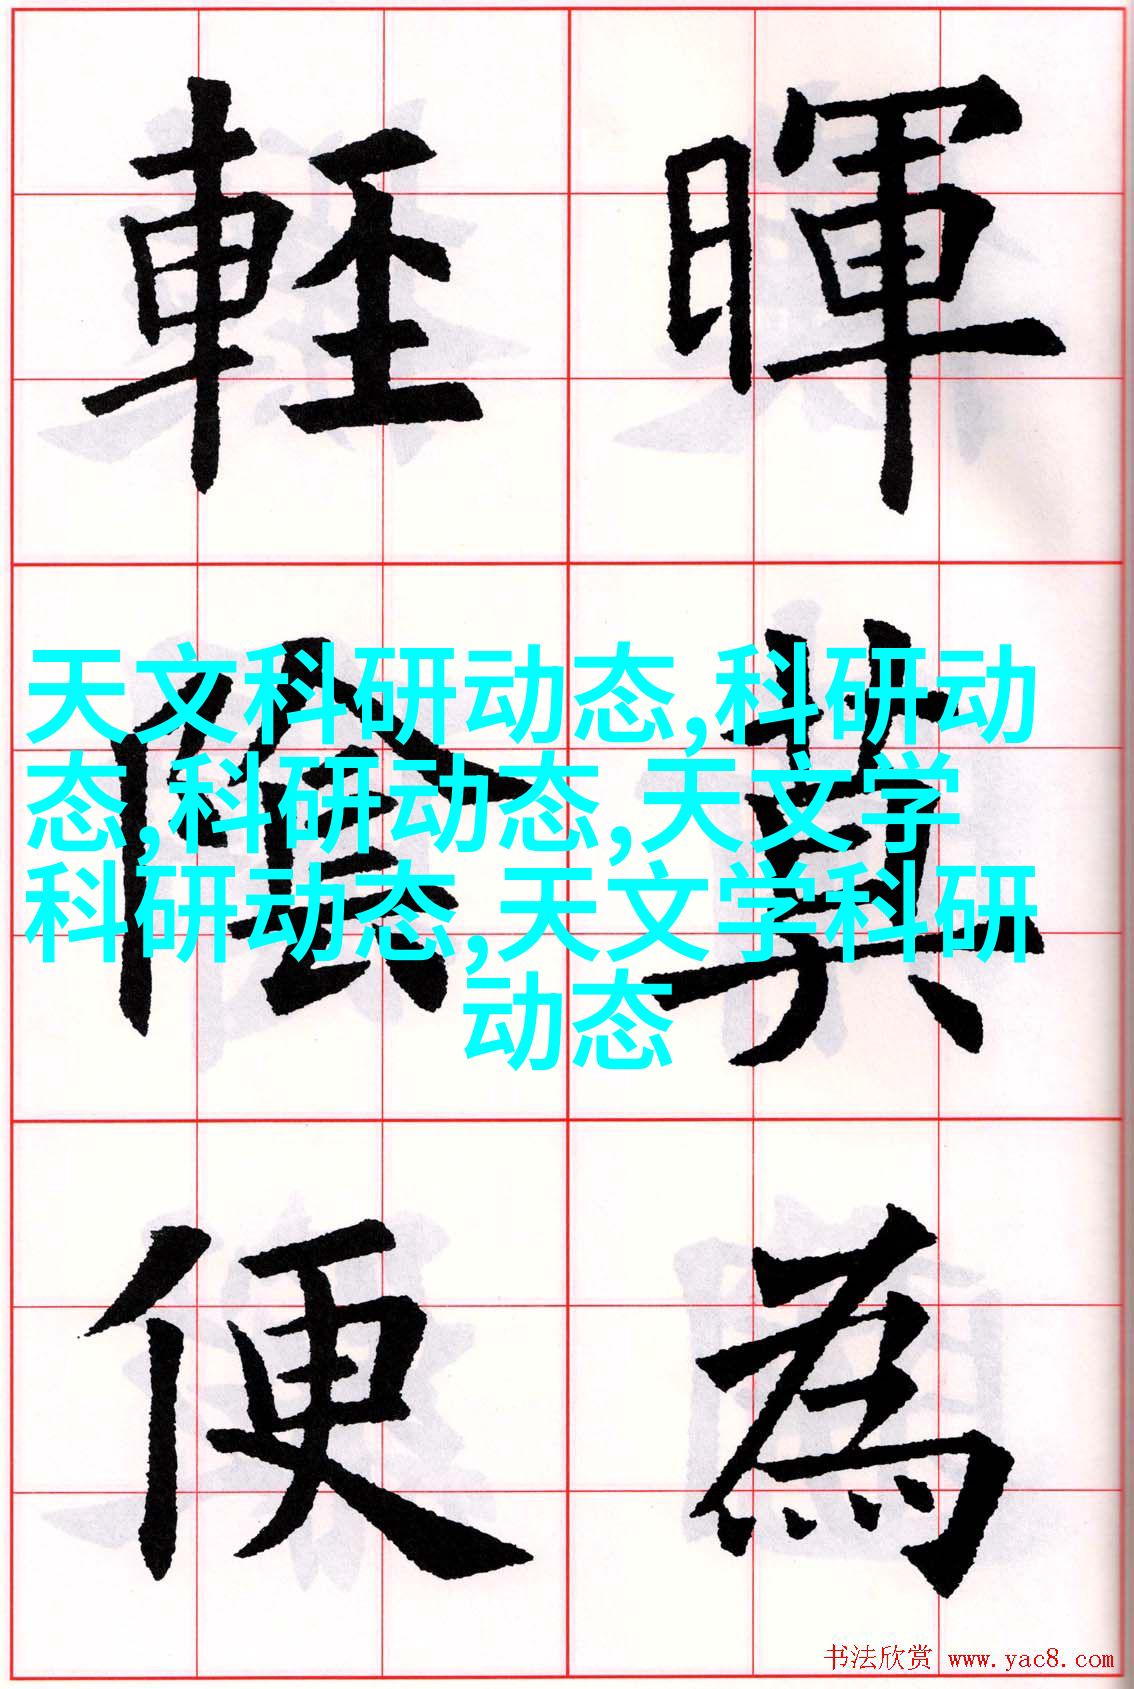 暉莫為
輕陰便
天文科研动态,科研动
态,科研动态,天文学
科研动态,天文学科研
动态
书法欣赏 www.yac8.com